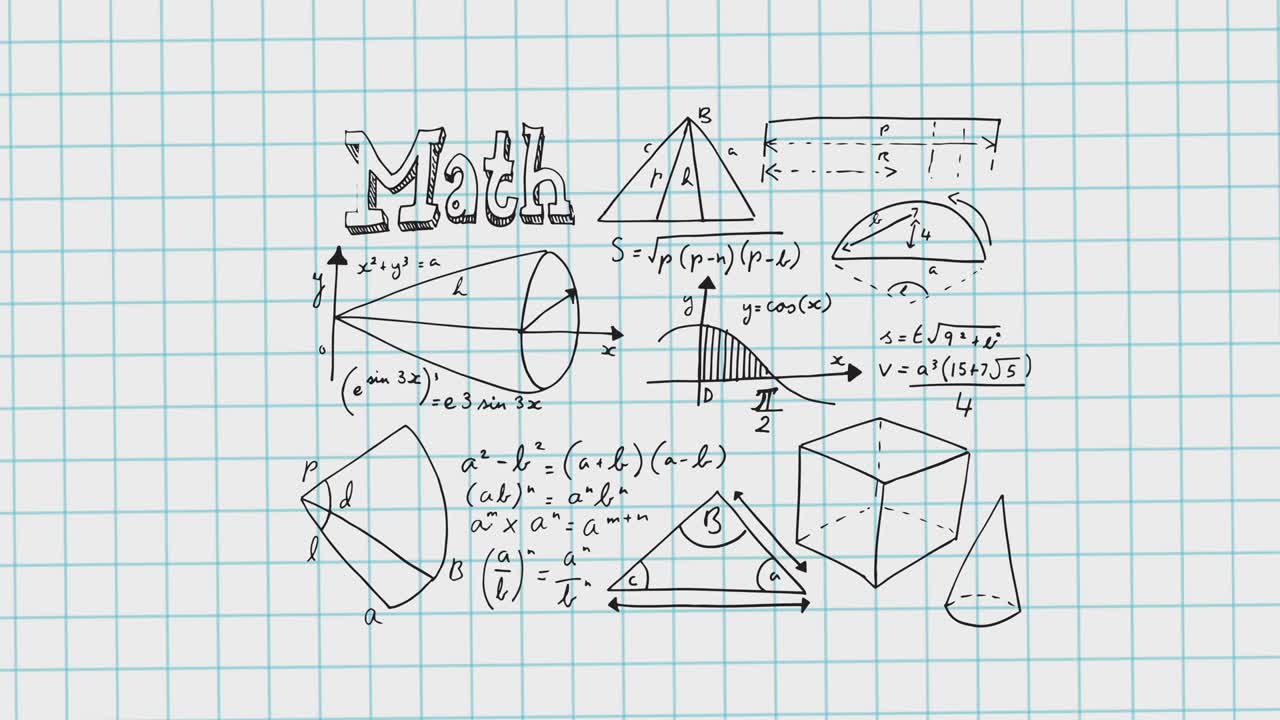 Math
B
c a
p h
P
R
b 4
a
e
S = √p(p-n)(p-b)
y x² + y³ = a
h
o x
(e^sin 3x)' = e3 sin 3x
y y = cos(x)
x
D π/2
s = t√9² + b²
V = a³(15+7√5)
4
P d
l B
a
a² - b² = (a+b)(a-b)
(ab)ⁿ = aⁿbⁿ
aᵐ x aⁿ = aᵐ⁺ⁿ
(a/b)ⁿ = aⁿ/bⁿ
B
c a